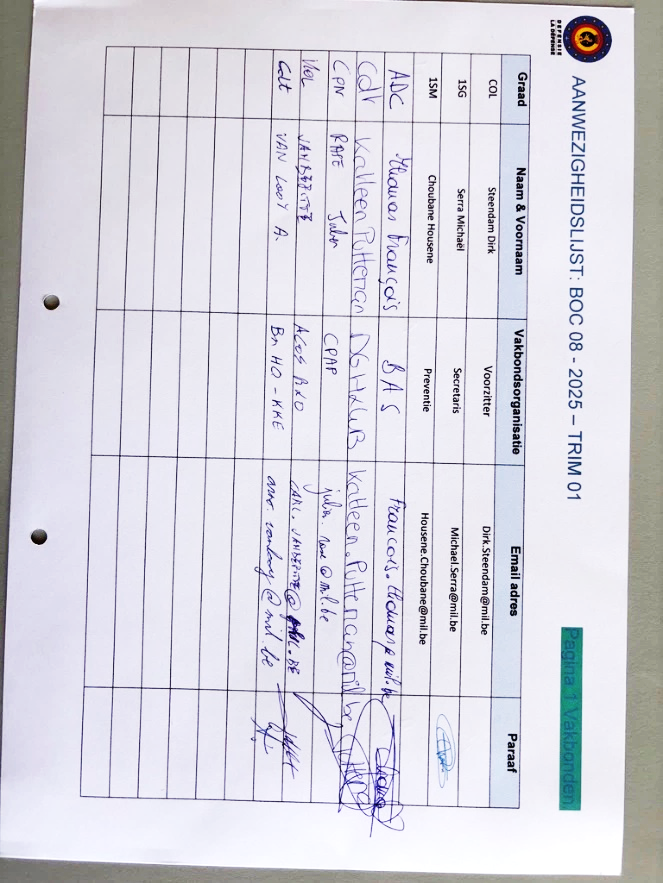 DEFENSIE
LA DEFENSE
AANWEZIGHEIDSLIJST: BOC 08 - 2025 – TRIM 01
Pagina 1 Vakbonden
Graad Naam & Voornaam Vakbondsorganisatie Email adres Paraaf
COL Steendam Dirk Voorzitter Dirk.Steendam@mil.be
1SG Serra Michaël Secretaris Michael.Serra@mil.be
1SM Choubane Housene Preventie Housene.Choubane@mil.be
ADC Thomas François BAS Francois.thomas@mil.be
Cdt Katleen Putteman Katleen.Putteman@mil.be
CPN Julien CPAP
VAN LOOY A. Bn HQ - KKE arno.vanlooy@mil.be